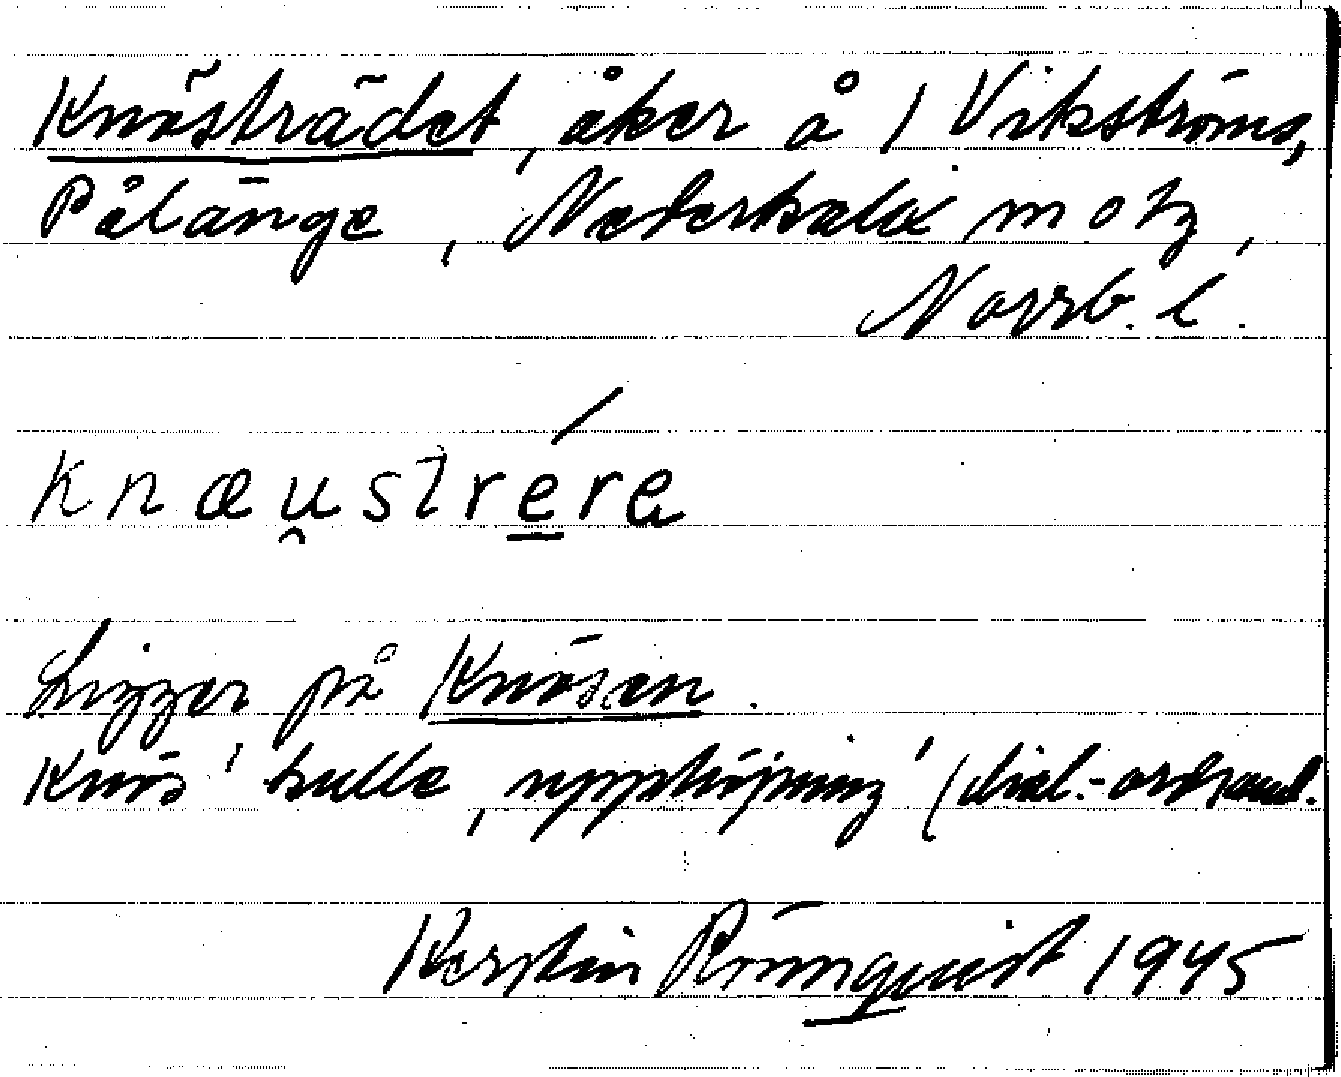 Knösträdet, åker å 1 Vikströms,
Pålänge, Nederkalix motz,
Norrb. l.
knæu̯stre̲re
Ligger på Knösen.
Knös 'kulle, upphöjning' (dial.-ordsaml.
Kerstin Rönnquist 1945